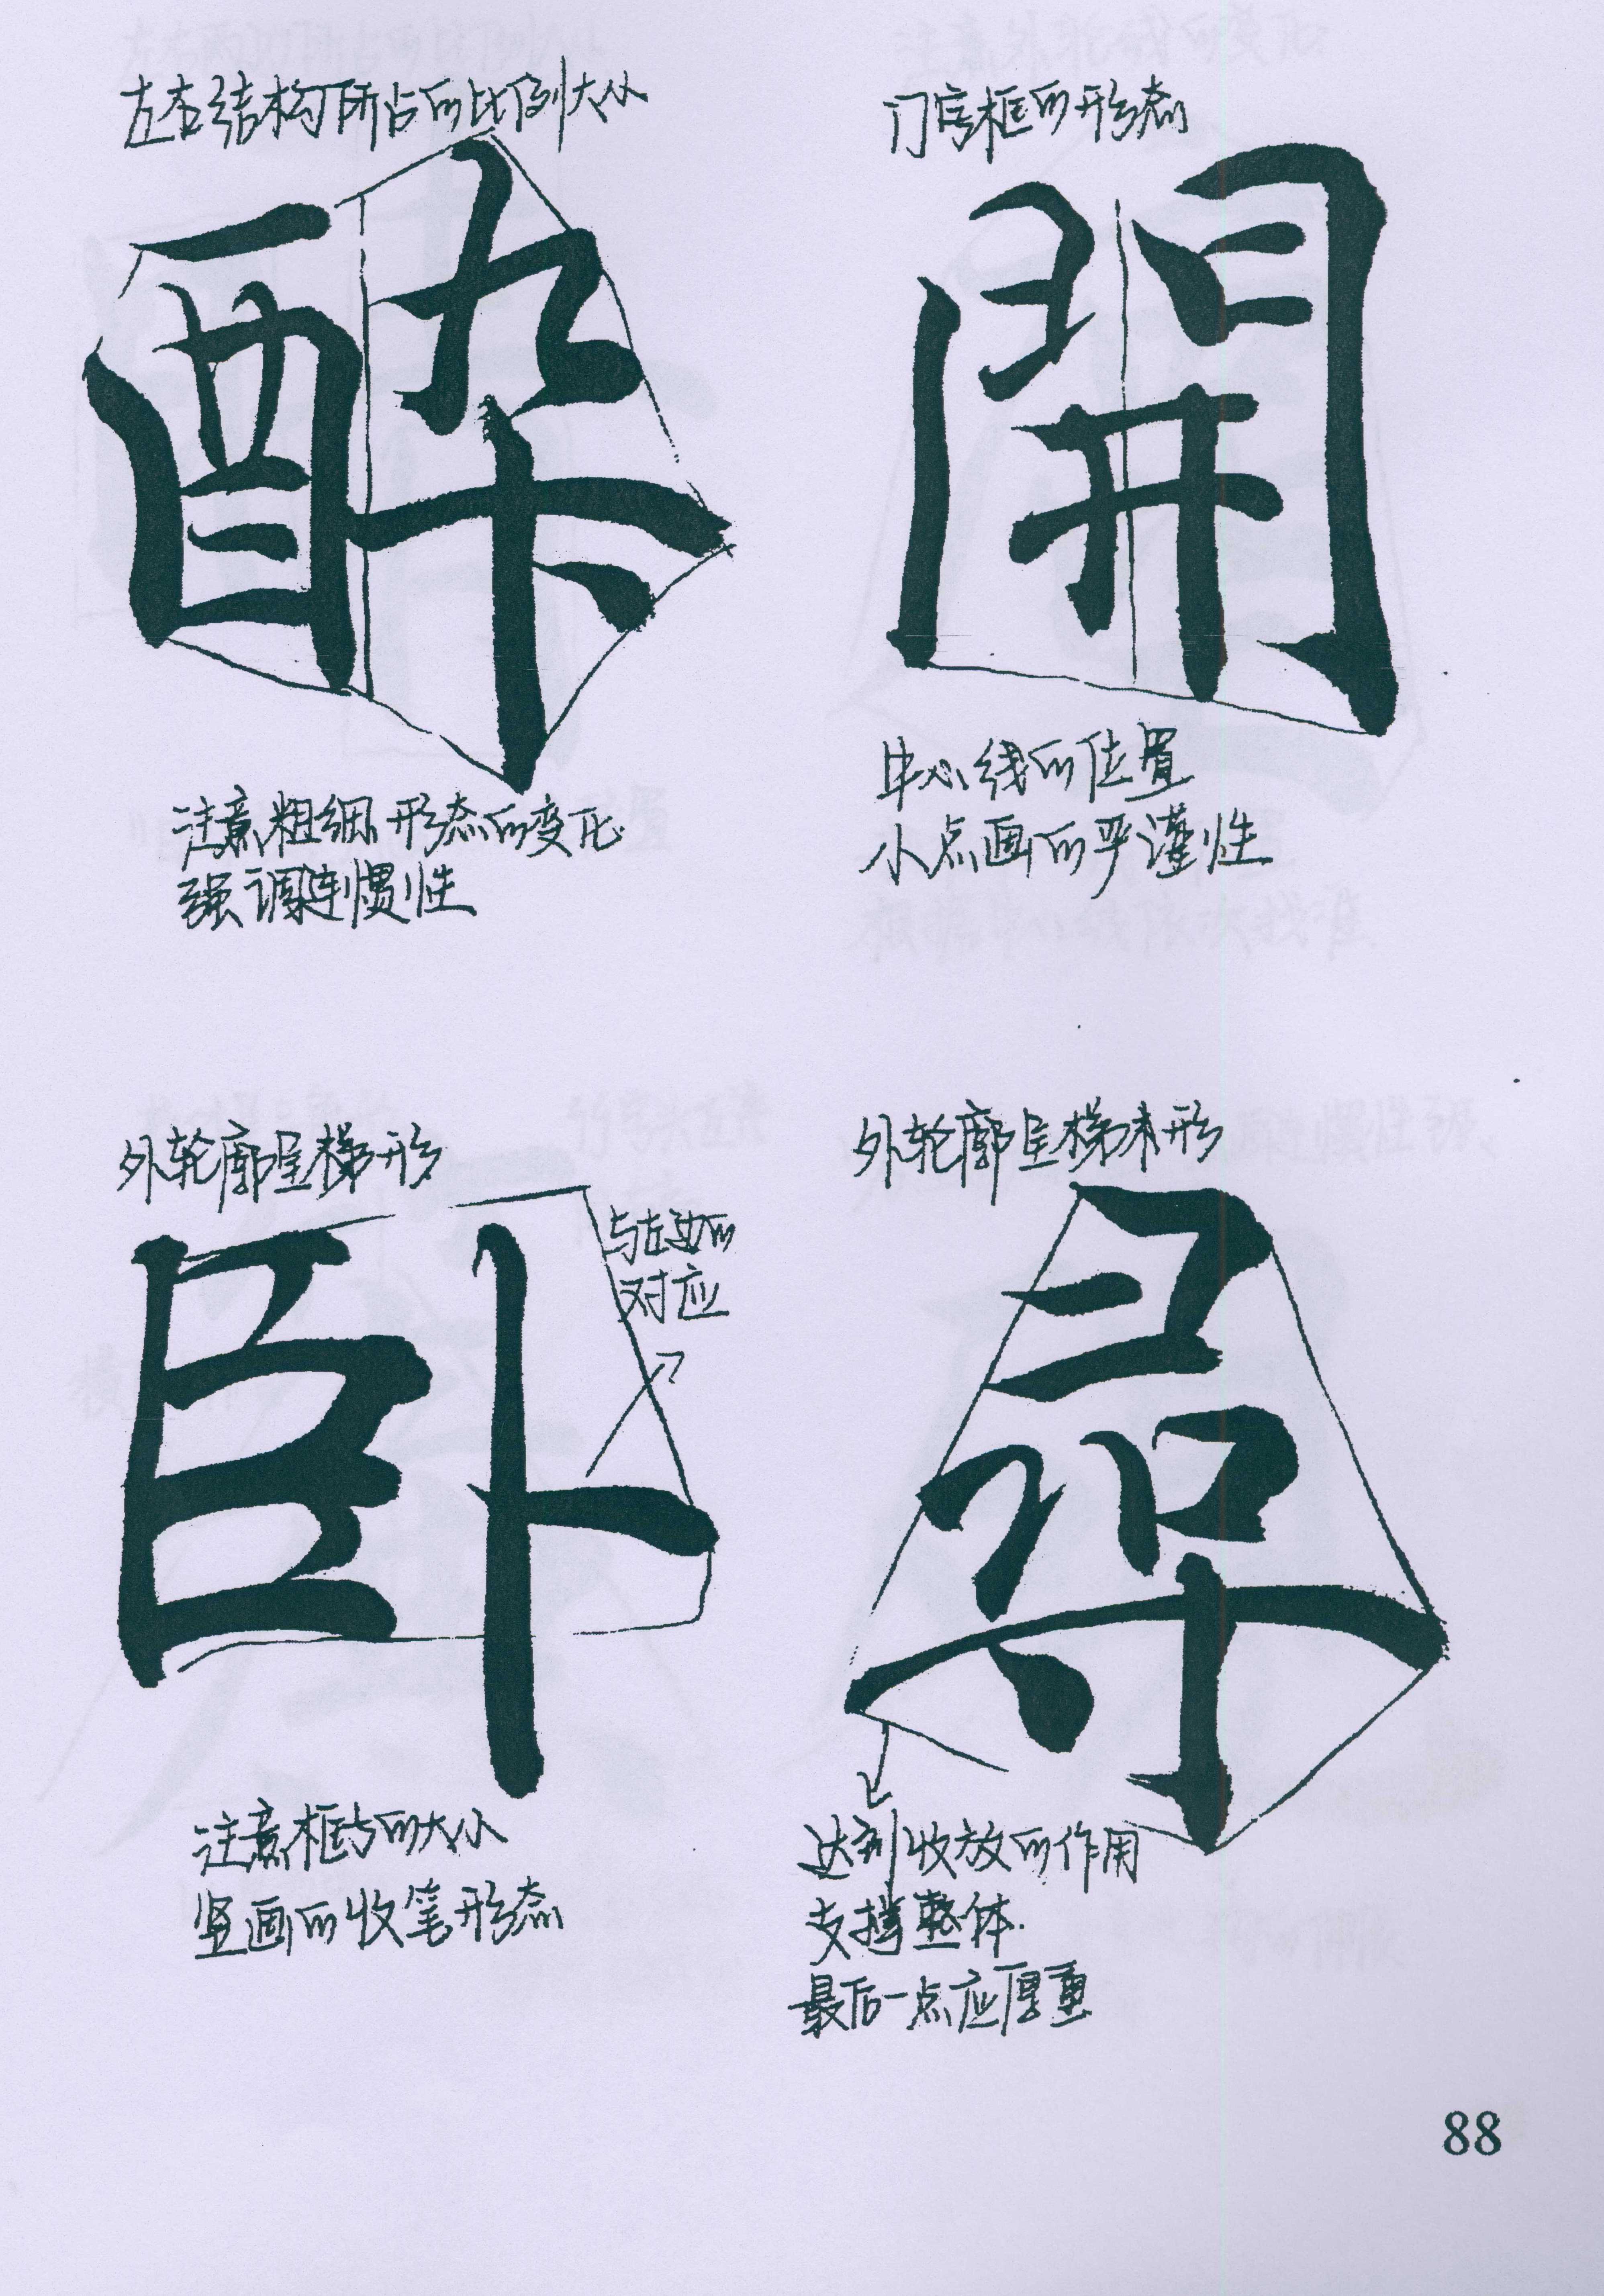 左右结构所占的比例大小
酔
注意粗细形态的变化
强调连惯性
门字框的形态
開
中心线的位置
小点画的严谨性
外轮廓呈梯形
卧
与左边的
对应
注意框与的大小
竖画的收笔形态
外轮廓呈梯形
尋
达到收放的作用
支撑整体.
最后一点应厚重
88